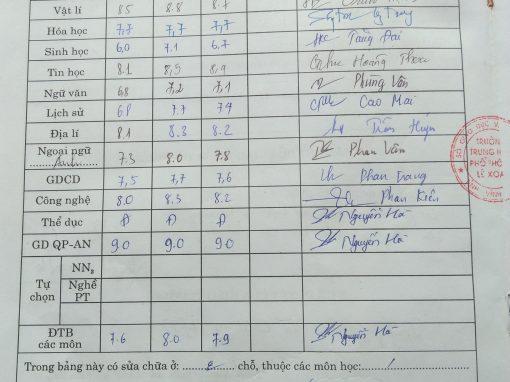 Vật lí 8.5 8.8 8.7
Hóa học 7,7 7,7 7,7
Sinh học 6,0 7.1 6,7 Tăng Đài
Tin học 8.1 8,5 8,4 Hoàng
Ngữ văn 68 7,2 7,1 Phùng Vân
Lịch sử 6.8 7.7 7.4 Cao Mai
Địa lí 8.1 8.3 8.2 Trần
Ngoại ngữ
Anh 7.3 8.0 7.8 Phan Vân
GDCD 7,5 7,7 7,6 Phan Trang
Công nghệ 8.0 8.3 8.2 Phan Kiên
Thể dục Đ Đ Đ Nguyễn Hà
GD QP-AN 9.0 9.0 9.0 Nguyễn Hà
Tự chọn
NN₂
Nghề
PT
ĐTB
các môn 7.6 8.0 7.9 Nguyễn Hà
Trong bảng này có sửa chữa ở: chỗ, thuộc các môn học: /
TRƯỜNG
TRUNG H
PHỔ THÔ
LÊ XOA